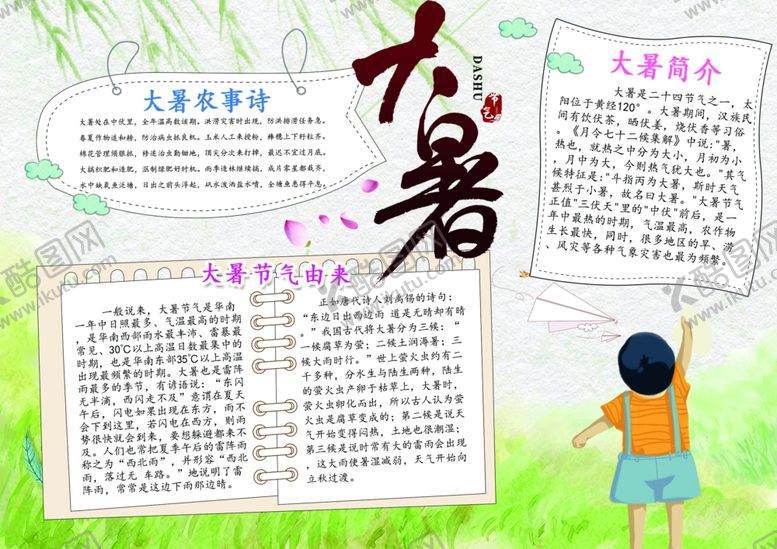 大暑
DASHU
节气
大暑农事诗
大暑处在中伏里，全年温高数该期。洪涝灾害时出现，防洪排涝任务急。
春夏作物追和耪，防治病虫抓良机。玉米人工来授粉，棒穗上下籽粒齐。
棉花管理须狠抓，修追治虫勤锄地，顶尖分次来打掉，最迟不宜过月底。
大搞积肥和造肥，沤制绿肥好时机。雨季造林继续搞，成片零星都栽齐。
水中缺氧鱼泛塘，日出之前头浮起，矾水泼洒盐水喷，全塘鱼患得平息。
大暑简介
大暑是二十四节气之一，太
阳位于黄经120°。大暑期间，汉族民
间有饮伏茶，晒伏姜，烧伏香等习俗
。《月令七十二候集解》中说:"暑，
热也，就热之中分为大小，月初为小
，月中为大，今则热气犹大也。"其气
候特征是:"斗指丙为大暑，斯时天气
甚烈于小暑，故名曰大暑。"大暑节气
正值"三伏天"里的"中伏"前后，是一
年中最热的时期，气温最高，农作物
生长最快，同时，很多地区的旱、涝
、风灾等各种气象灾害也最为频繁。
大暑节气由来
一般说来，大暑节气是华南
一年中日照最多、气温最高的时期
，是华南西部雨水最丰沛、雷暴最
常见、30℃以上高温日数最集中的
时期，也是华南东部35℃以上高温
出现最频繁的时期。大暑也是雷阵
雨最多的季节，有谚语说：“东闪
无半滴，西闪走不及”意谓在夏天
午后，闪电如果出现在东方，雨不
会下到这里，若闪电在西方，则雨
势很快就会到来，要想躲避都来不
及。人们也常把夏季午后的雷阵雨
称之为“西北雨”，并形容“西北
雨，落过无 车路。”地说明了雷
阵雨，常常是这边下雨那边晴。
正如唐代诗人刘禹锡的诗句：
“东边日出西边雨 道是无晴却有晴
。”我国古代将大暑分为三候：“
一候腐草为萤；二候土润溽暑；三
候大雨时行。”世上萤火虫约有二
千多种，分水生与陆生两种，陆生
的萤火虫产卵于枯草上，大暑时，
萤火虫卵化而出，所以古人认为萤
火虫是腐草变成的；第二候是说天
气开始变得闷热，土地也很潮湿；
第三候是说时常有大的雷雨会出现
，这大雨使暑湿减弱，天气开始向
立秋过渡。